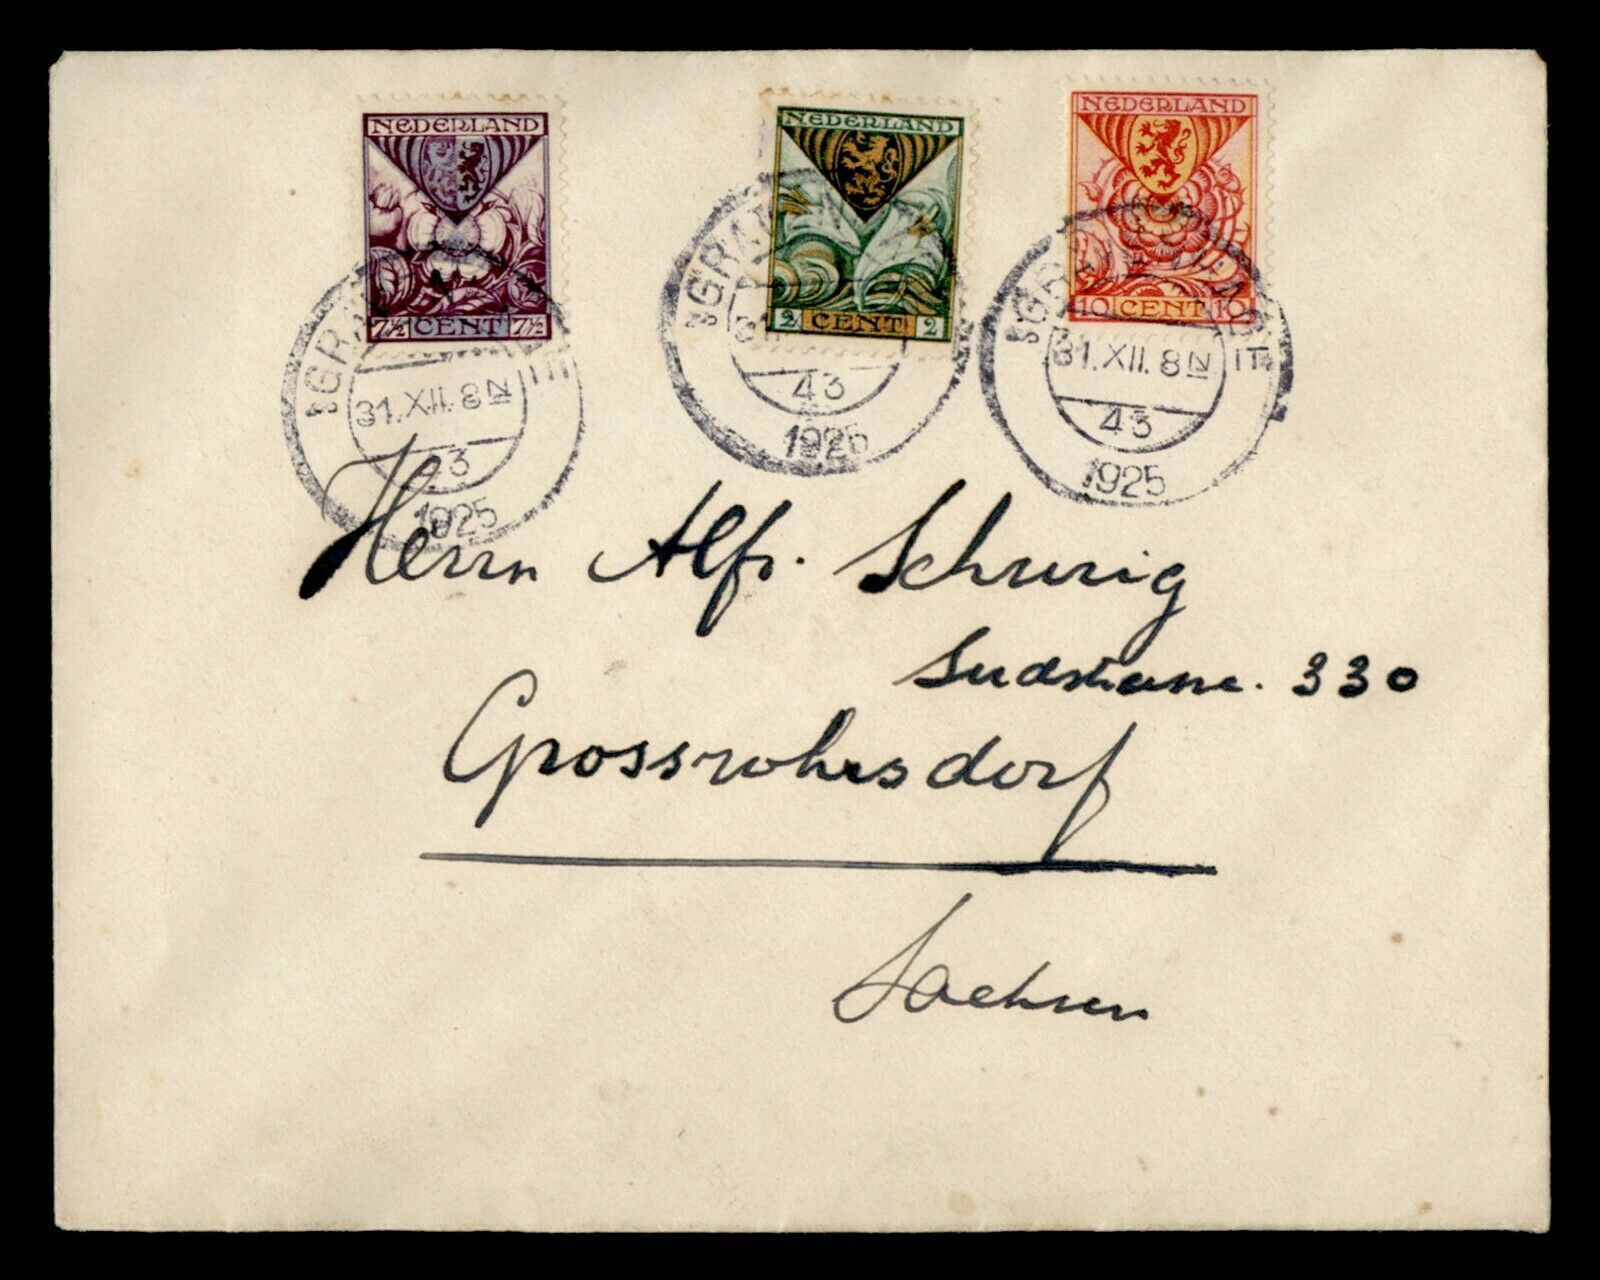 NEDERLAND
7½ CENT 7½
NEDERLAND
2 CENT 2
NEDERLAND
10 CENT 10
31.XII.8N
1925
43
1925
31.XII.8N
43
1925
Herrn Alfr. Schurig
Sudstrasse. 330
Grossrohrsdorf
Sachsen